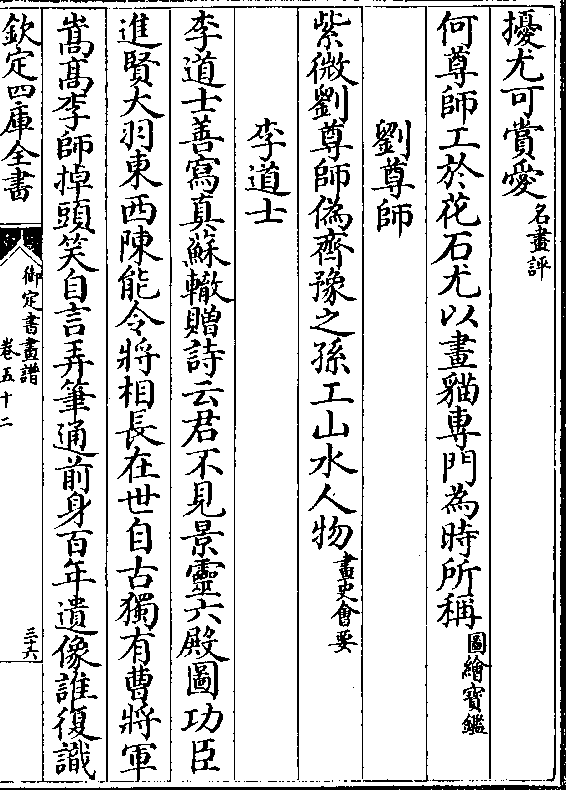 擾尤可賞愛名畫評
何尊師工於花石尤以畫貓専門為時所稱圖繪寶鑑
劉尊師
紫微劉尊師偽齊豫之孫工山水人物畫史會要
李道士
李道士善寫真蘇轍贈詩云君不見景靈六殿圖功臣
進賢大羽東西陳能令將相長在世自古獨有曹將軍
嵩髙李師掉頭笑自言弄筆通前身百年遺像誰復識
欽定四庫全書
御定書畫譜
卷五十二
三十六